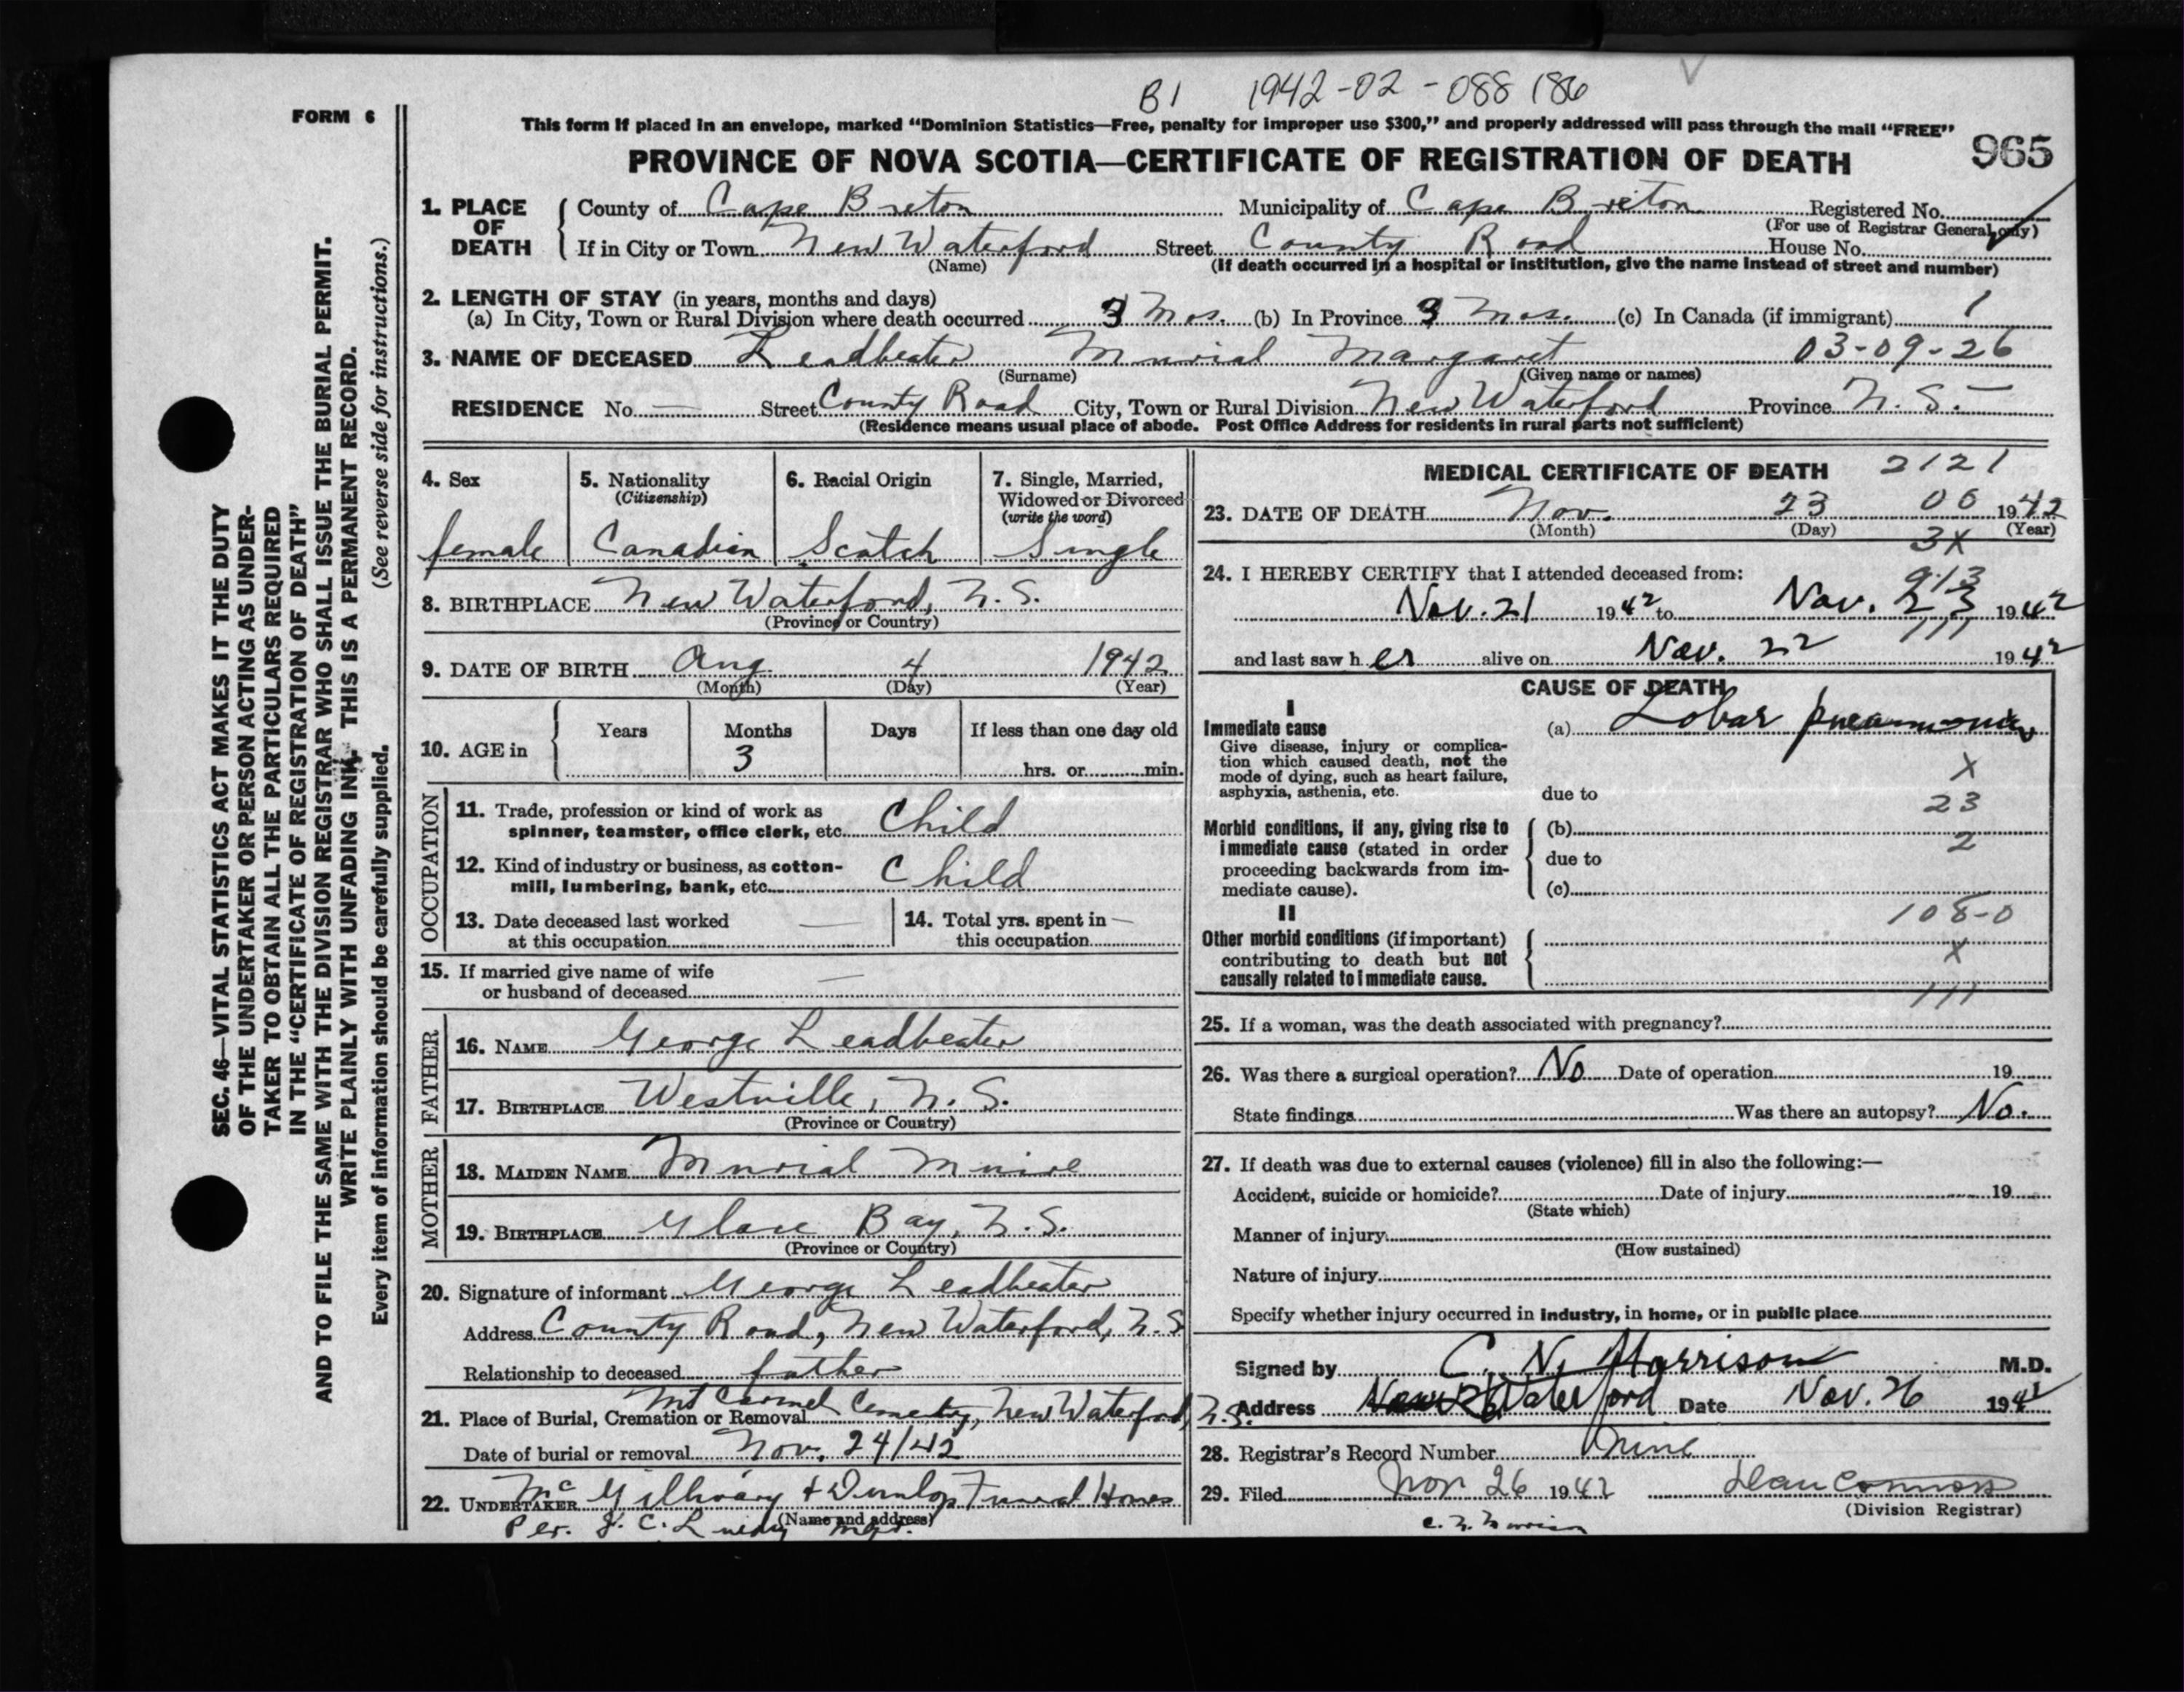 B1 1942-02-088186
FORM 6
This form if placed in an envelope, marked "Dominion Statistics—Free, penalty for improper use $300," and properly addressed will pass through the mail "FREE"
PROVINCE OF NOVA SCOTIA—CERTIFICATE OF REGISTRATION OF DEATH 965
SEC. 46—VITAL STATISTICS ACT MAKES IT THE DUTY
OF THE UNDERTAKER OR PERSON ACTING AS UNDER-
TAKER TO OBTAIN ALL THE PARTICULARS REQUIRED
IN THE "CERTIFICATE OF REGISTRATION OF DEATH"
AND TO FILE THE SAME WITH THE DIVISION REGISTRAR WHO SHALL ISSUE THE BURIAL PERMIT.
WRITE PLAINLY WITH UNFADING INK. THIS IS A PERMANENT RECORD.
Every item of information should be carefully supplied. (See reverse side for instructions.)
1. PLACE OF DEATH
County of Cape Breton Municipality of Cape Breton Registered No.
(For use of Registrar General only)
If in City or Town New Waterford Street County Road House No.
(Name) (If death occurred in a hospital or institution, give the name instead of street and number)
2. LENGTH OF STAY (in years, months and days)
(a) In City, Town or Rural Division where death occurred 3 Mos. (b) In Province 3 Mos. (c) In Canada (if immigrant) 1
3. NAME OF DECEASED Leadbeater Murial Margaret 03-09-26
(Surname) (Given name or names)
RESIDENCE No. — Street County Road City, Town or Rural Division New Waterford Province N. S.
(Residence means usual place of abode. Post Office Address for residents in rural parts not sufficient)
4. Sex
female
5. Nationality
(Citizenship)
Canadian
6. Racial Origin
Scotch
7. Single, Married,
Widowed or Divorced
(write the word)
Single
8. BIRTHPLACE New Waterford, N.S.
(Province or Country)
9. DATE OF BIRTH Aug. 4 1942
(Month) (Day) (Year)
10. AGE in
Years Months Days If less than one day old
3 hrs. or min.
OCCUPATION
11. Trade, profession or kind of work as
spinner, teamster, office clerk, etc. Child
12. Kind of industry or business, as cotton-
mill, lumbering, bank, etc. Child
13. Date deceased last worked
at this occupation —
14. Total yrs. spent in
this occupation —
15. If married give name of wife
or husband of deceased —
FATHER
16. NAME George Leadbeater
17. BIRTHPLACE Westville, N. S.
(Province or Country)
MOTHER
18. MAIDEN NAME Murial
19. BIRTHPLACE Glace Bay, N. S.
(Province or Country)
20. Signature of informant George Leadbeater
Address County Road, New Waterford, N.S
Relationship to deceased father
21. Place of Burial, Cremation or Removal Mt Carmel Cemetery, New Waterford, N.S.
Date of burial or removal Nov. 24/42
22. UNDERTAKER Mc Gillivary + Dunlop Funeral Homes
(Name and address)
Per. J. C. Mgr.
MEDICAL CERTIFICATE OF DEATH 2121
23. DATE OF DEATH Nov. 23 06 1942
(Month) (Day) (Year)
3X
24. I HEREBY CERTIFY that I attended deceased from: 913
Nov. 21 1942 to Nov. 23 1942
111
and last saw her alive on Nov. 22 1942
CAUSE OF DEATH
I
Immediate cause (a) Lobar pneumonia
Give disease, injury or complica-
tion which caused death, not the
mode of dying, such as heart failure,
asphyxia, asthenia, etc. due to
X
23
Morbid conditions, if any, giving rise to
immediate cause (stated in order
proceeding backwards from im-
mediate cause).
(b)
2
due to
(c)
II 108-0
Other morbid conditions (if important)
contributing to death but not
causally related to immediate cause.
X
111
25. If a woman, was the death associated with pregnancy?
26. Was there a surgical operation? No Date of operation 19
State findings Was there an autopsy? No.
27. If death was due to external causes (violence) fill in also the following:—
Accident, suicide or homicide? Date of injury 19
(State which)
Manner of injury
(How sustained)
Nature of injury
Specify whether injury occurred in industry, in home, or in public place
Signed by C. N. Morrison M.D.
Address Waterford Date Nov. 26 1942
28. Registrar's Record Number Nine
29. Filed Nov 26 1942
(Division Registrar)